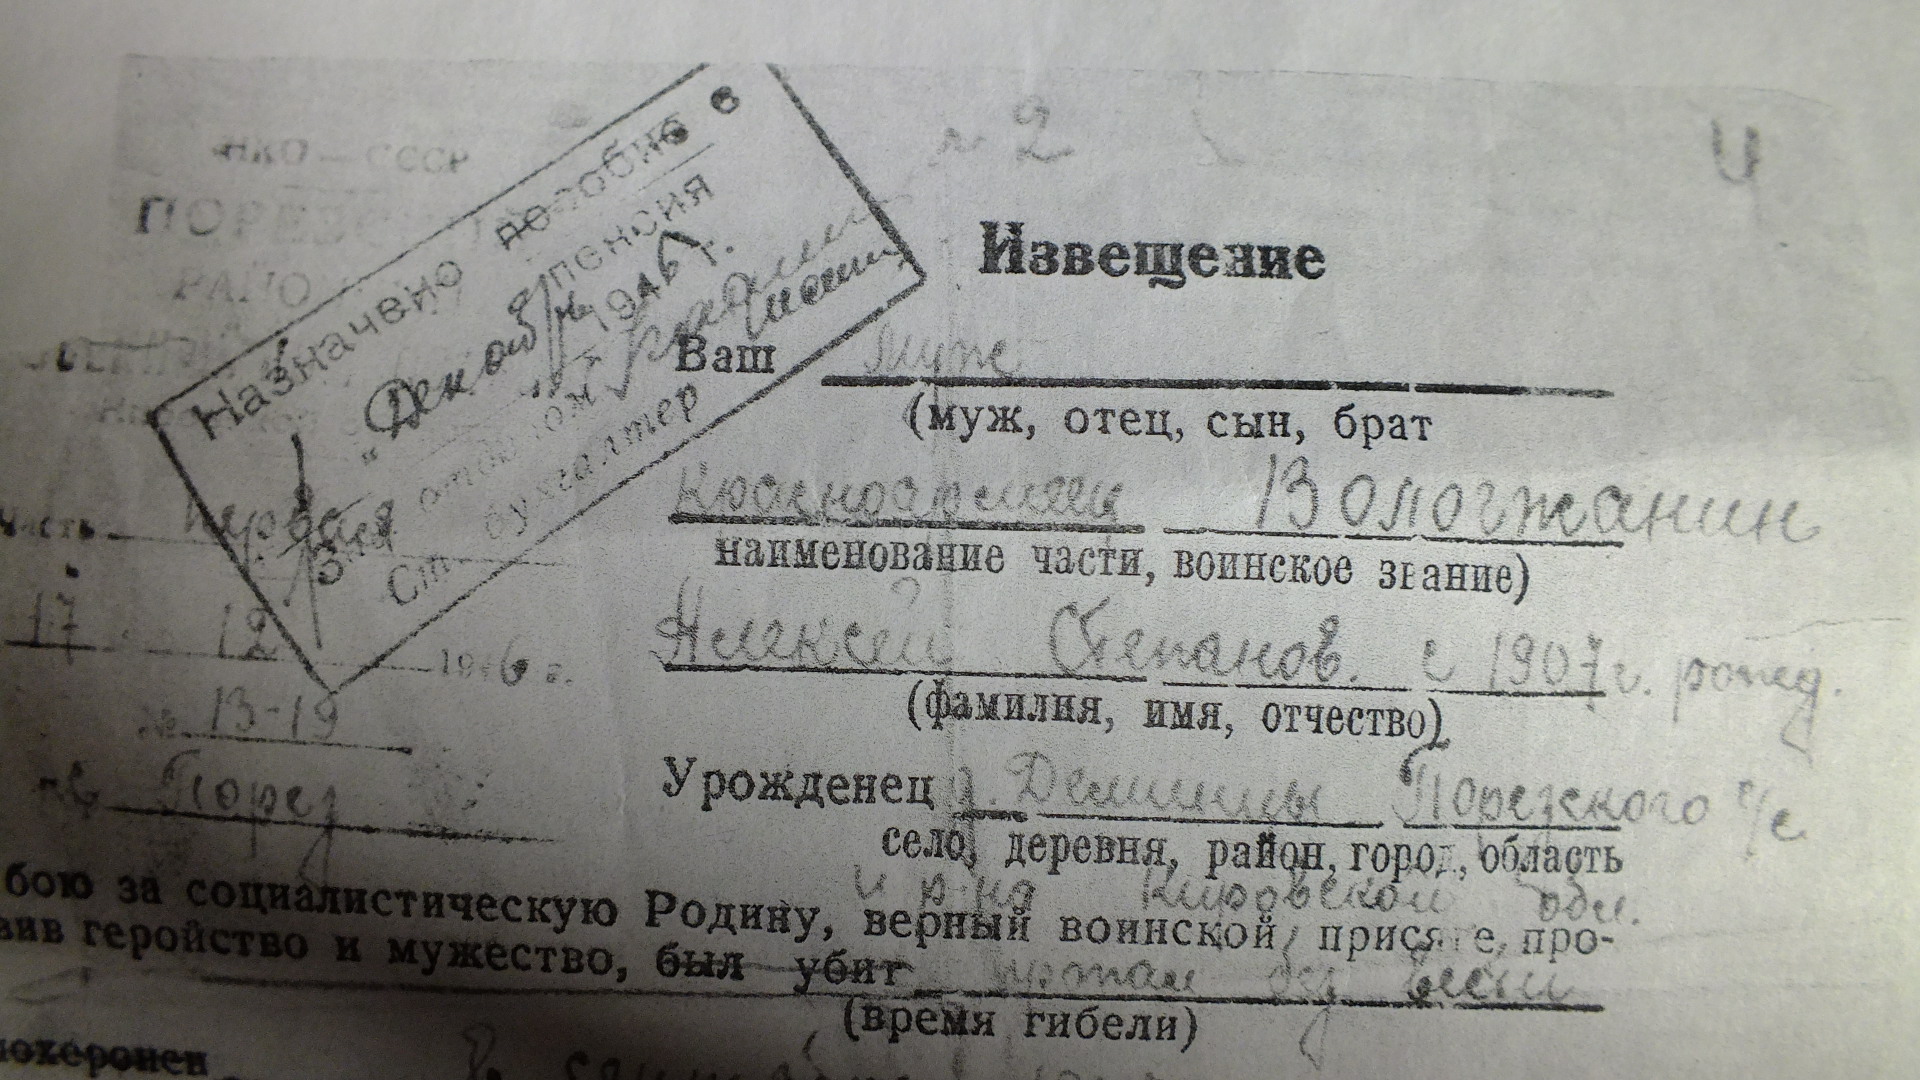 НКО — СССР
Назначено пособие в
пенсия
Декабря 1946 г.
Зав отделом
Ст бухгалтер
№ 2
Извещение
Ваш муж
(муж, отец, сын, брат
Красноармеец Вологжанин
наименование части, воинское звание)
Алексей Степанов. с 1907 г. рожд.
(фамилия, имя, отчество)
Урожденец д. Демшины Порезского с/с
село, деревня, район, город, область
и р-на Кировской обл.
часть Первая
17 12 1946 г.
№ 13-19
Порез
бою за социалистическую Родину, верный воинской присяге, про-
вив геройство и мужество, был убит пропал без вести
(время гибели)
похоронен